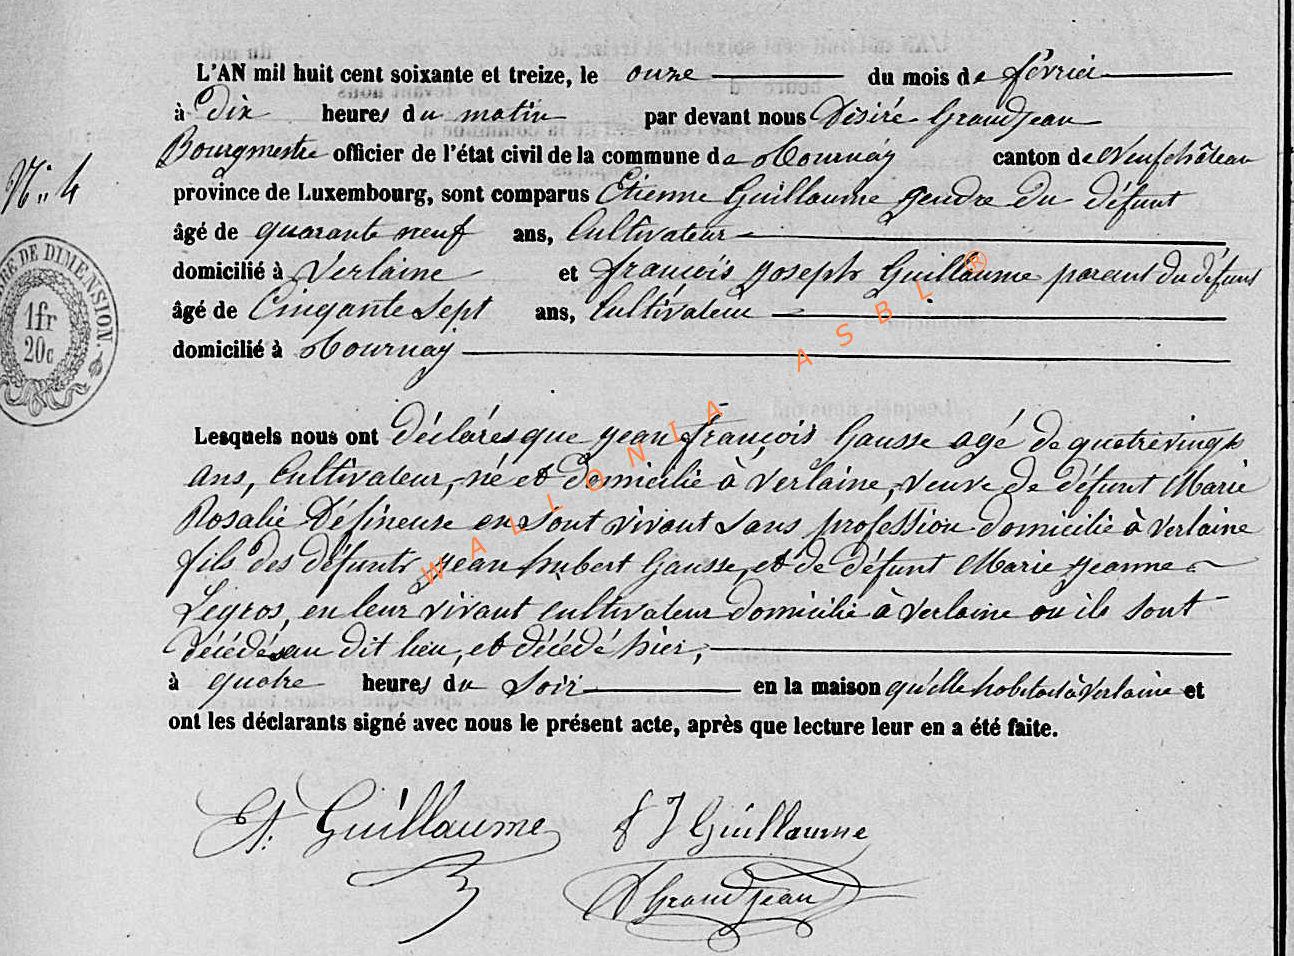 L'AN mil huit cent soixante et treize, le onze du mois de février
à Dix heures du matin par devant nous Désiré Grandjean
Bourgmestre officier de l'état civil de la commune de Tournay canton de Neufchâteau
N.° 4
province de Luxembourg, sont comparus Etienne Guillaume gendre du défunt
âgé de quarante neuf ans, Cultivateur
domicilié à Verlaine et françois Joseph Guillaume parent du défunt
âgé de Cinqante Sept ans, Cultivateur
domicilié à Tournay
DE DIMENSION
1fr
20c
Lesquels nous ont déclarés que Jean françois Gausse agé de quatrevingt
ans, Cultivateur, né et domicilié à Verlaine, veuve de défunt Marie
Rosalie Défineuse en sont vivant sans profession domicilié à Verlaine
fils des défunts Jean hubert Gausse, et de défunt Marie Jeanne
Legros, en leur vivant cultivateur domicilié à Verlaine ou ils sont
décédés au dit lieu, et décédé hier,
à quatre heures du Soir en la maison qu'elle habitait à Verlaine et
ont les déclarants signé avec nous le présent acte, après que lecture leur en a été faite.
Et. Guillaume f J Guillaume
D Grandjean
WALLONIA ASBL ®